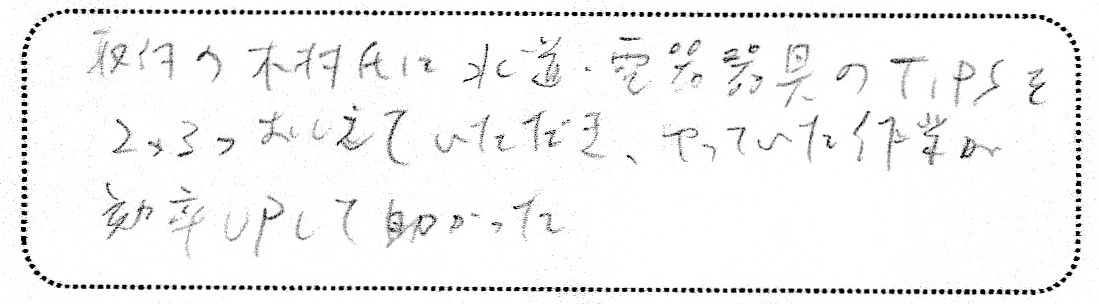 取付の木村氏に水道・電器器具のTIPSを
2,3つおしえていただき、やっていた作業が
効率UPして助かった